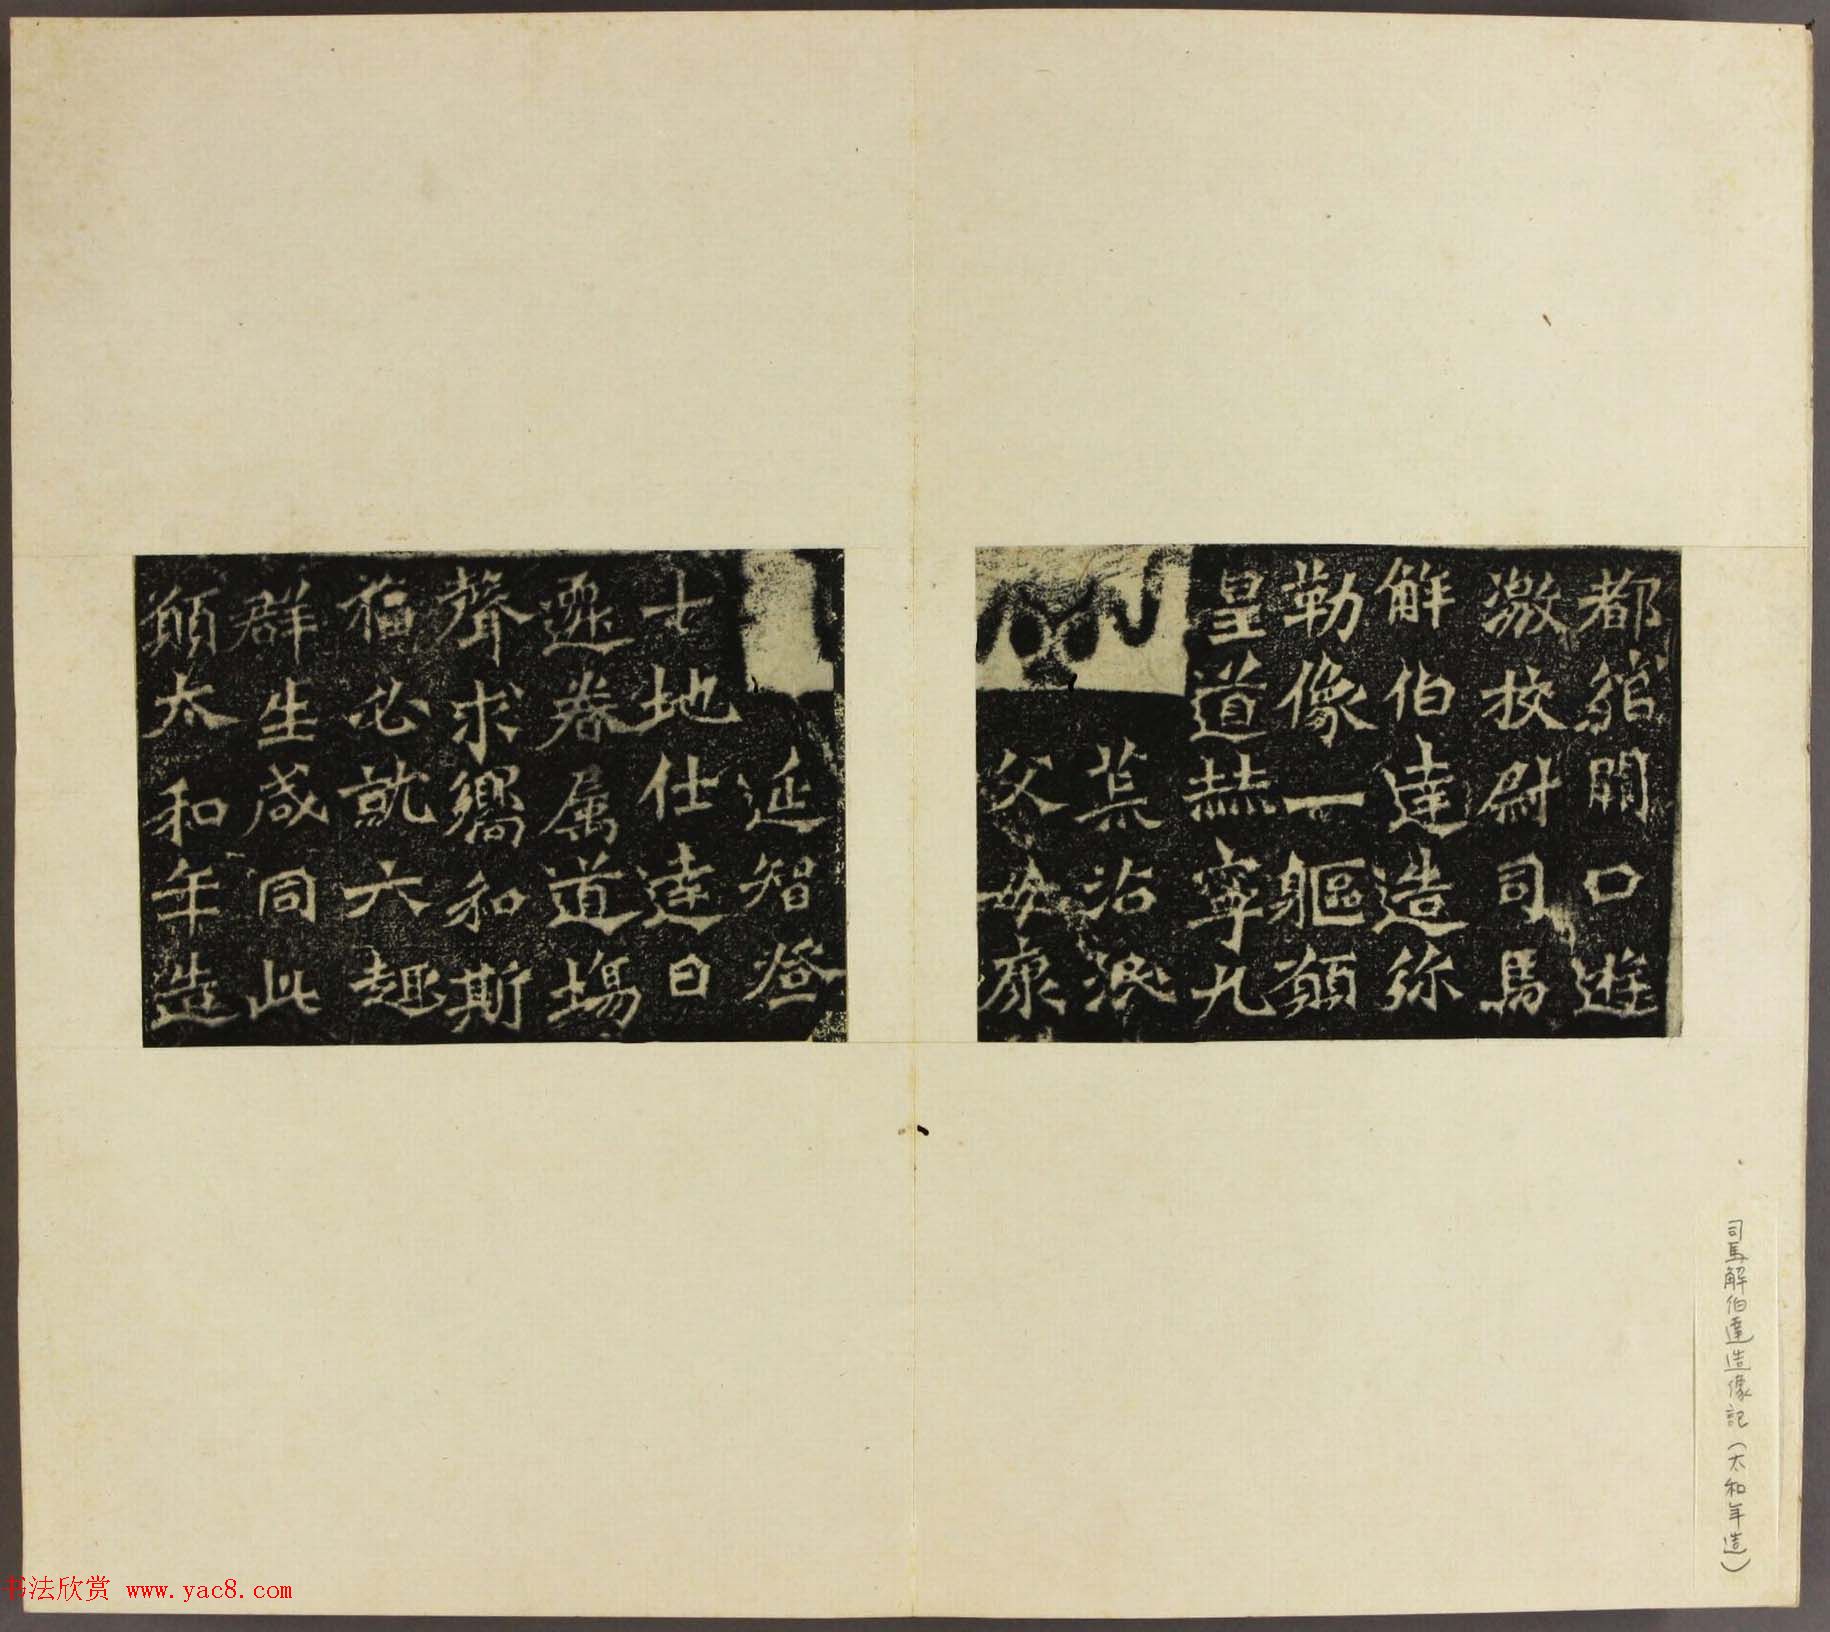 都綰闕口遊
激校尉司馬
解伯達造弥
勒像一軀願
皇道赫寧九
荒沾泯
父母康
延智登
十地仕達日
遷眷属道場
聲求嚮和斯
福必就六趣
群生咸同此
願太和年造
司馬解伯達造像記(太和年造)
书法欣赏 www.yac8.com